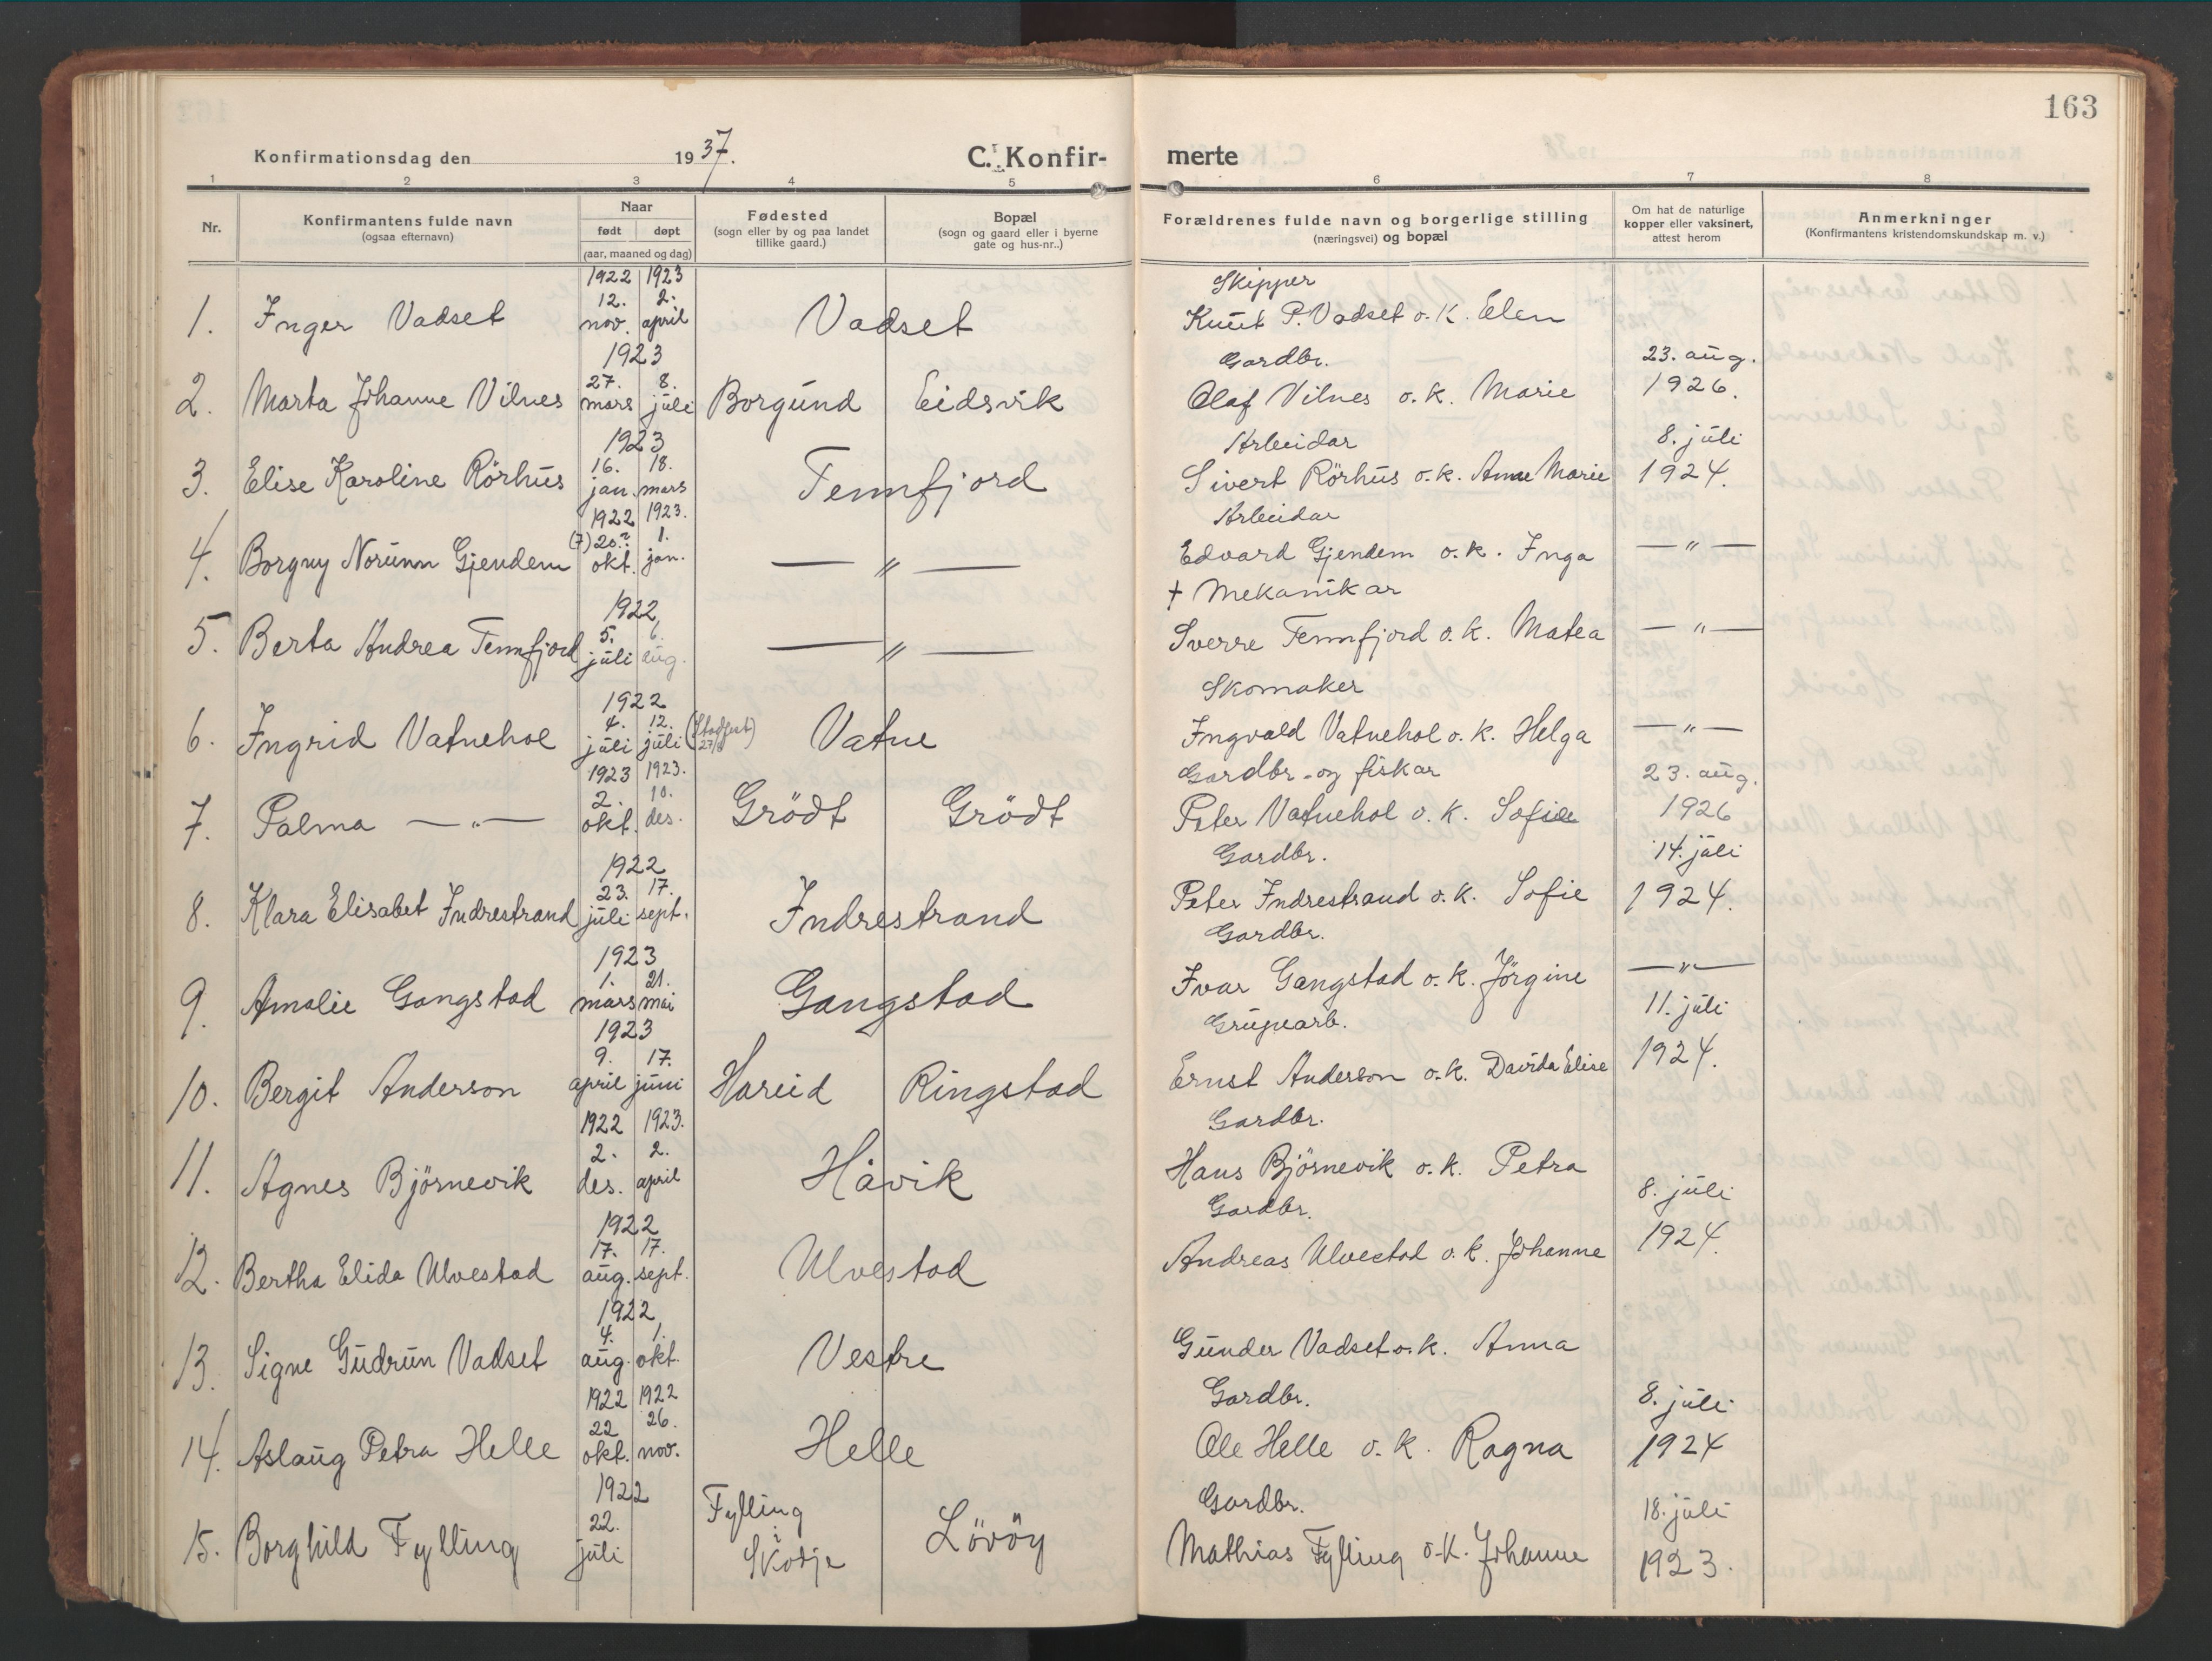 163
Konfirmationsdag den 1937. C. Konfir- merte
1 2 3 4 5 6 7 8
Nr.
Konfirmantens fulde navn
(ogsaa efternavn)
Naar
født døpt
(aar, maaned og dag)
Fødested
(sogn eller by og paa landet
tillike gaard.)
Bopæl
(sogn og gaard eller i byerne
gate og hus-nr..)
Forældrenes fulde navn og borgerlige stilling
(næringsvei) og bopæl
Om hat de naturlige
kopper eller vaksinert,
attest herom
Anmerkninger
(Konfirmantens kristendomskundskap m. v.)
1922 1923 Skipper
12. 2.
1. Inger Vadset nov. april Vadset Knut P. Vadset o. k. Elen
1923 Gardbr. 23. aug.
27. 8.
2. Marta Johanne Vilnes mars juli Borgund Eidsvik Olaf Vilnes o. k. Marie 1926.
1923 Arbeidar 8. juli
16. 18.
3. Elise Karoline Rörhus jan. mars Tennfjord Sivert Rörhus o. k. Anne Marie 1924.
1922 1923. Arbeidar
(7) 20.? 1.
4. Borgny Norunn Gjendem okt. jan. — " — Edvard Gjendem o. k. Inga — " —
1922 + Mekanikar
5. 6.
5. Berta Andrea Tennfjord juli aug. — " — Sverre Tennfjord o. k. Matea — " —
1922 Skomaker
4. 12. (Stadfest
6. Ingrid Vatnehol juli juli 27/8) Vatne Ingvald Vatnehol o. k. Helga — " —
1923 1923. Gardbr. og fiskar 23. aug.
2. 10.
7. Palma — " — okt. des. Grödt Grödt Peter Vatnehol o. k. Sofie 1926
1922 Gardbr. 14. juli
23. 17.
8. Klara Elisabet Indrestrand juli sept. Indrestrand Peter Indrestrand o. k. Sofie 1924.
1923 Gardbr.
1. 21.
9. Amalie Gangstad mars mai Gangstad Ivar Gangstad o. k. Jörgine — " —
1923 Gruvearb. 11. juli
9. 17.
10. Bergit Anderson april juni Hareid Ringstad Ernst Anderson o. k. Davida Elise 1924.
1922 1923. Gardbr.
2. 2.
11. Agnes Björnevik des. april Håvik Hans Björnevik o. k. Petra
1922 Gardbr. 8. juli
17. 17.
12. Bertha Elida Ulvestad aug. sept. Ulvestad Andreas Ulvestad o. k. Johanne 1924.
1922
4. 1.
13. Signe Gudrun Vadset aug. okt. Vestre Gunder Vadset o. k. Anna
1922 1922 Gardbr. 8. juli
22 26.
14. Aslaug Petra Helle okt. nov. Helle Ole Helle o. k. Ragna 1924
1922 Fylling Gardbr. 18. juli
22. i
15. Borghild Fylling juli Skodje Lövöy Mathias Fylling o. k. Johanne 1923.